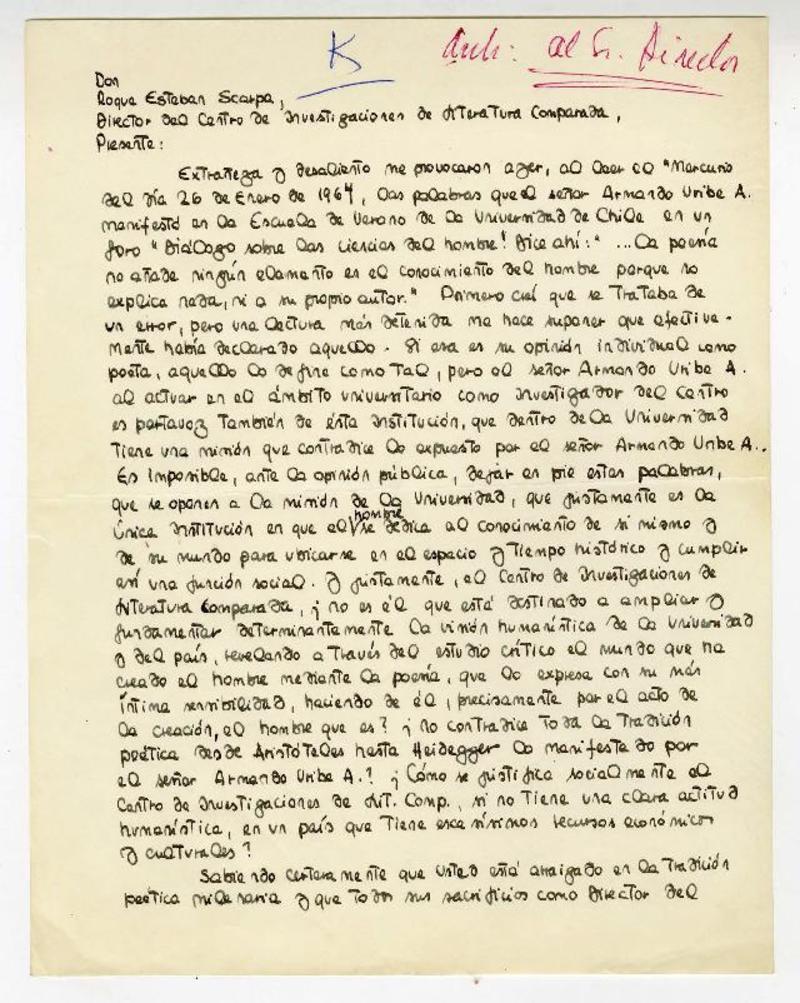 K
Arch: al Sr. Director
Don
Roque Esteban Scarpa,
Director del Centro de Investigaciones de Literatura Comparada,
Presente:
Extrañeza y desaliento me provocaron ayer, al leer el "Mercurio
del día 26 de Enero de 1964, las palabras que el señor Armando Uribe A.
manifestó en la Escuela de Verano de la Universidad de Chile en un
foro "Diálogo sobre las ciencias del hombre! Dice ahí: "... la poesía
no añade ningún elemento en el conocimiento del hombre porque no
explica nada, ni a su propio autor." Primero creí que se trataba de
un error, pero una lectura más detenida me hace suponer que efectiva-
mente había declarado aquello. Si esa es su opinión individual como
poeta, aquello lo define como tal, pero el señor Armando Uribe A.
al actuar en el ámbito universitario como investigador del Centro
es portavoz también de ésta institución, que dentro de la Universidad
tiene una misión que contradice lo expuesto por el señor Armando Uribe A..
Es imposible, ante la opinión pública, dejar en pie estas palabras,
que se oponen a la misión de la Universidad, que justamente es la
única institución en que el hombre se dedica al conocimiento de si mismo y
de su mundo para ubicarse en el espacio y tiempo histórico y cumplir
así una función social. Y justamente, el Centro de Investigaciones de
Literatura Comparada, ¿no es él que está destinado a ampliar y
fundamentar determinantemente la visión humanística de la Universidad
y del país, revelando a través del estudio crítico el mundo que ha
creado el hombre mediante la poesía, que lo expresa con su más
íntima sensibilidad, haciendo de él, precisamente por el acto de
la creación, el hombre que es? ¿No contradice toda la tradición
poética desde Aristóteles hasta Heidegger lo manifestado por
el señor Armando Uribe A.? ¿Cómo se justifica socialmente el
Centro de Investigaciones de Lit. Comp., si no tiene una clara actitud
humanística, en un país que tiene escasísimos recursos económicos
y culturales?
Sabiendo certeramente que Usted está arraigado en la tradición
poética milenaria y que todos sus sacrificios como Director del